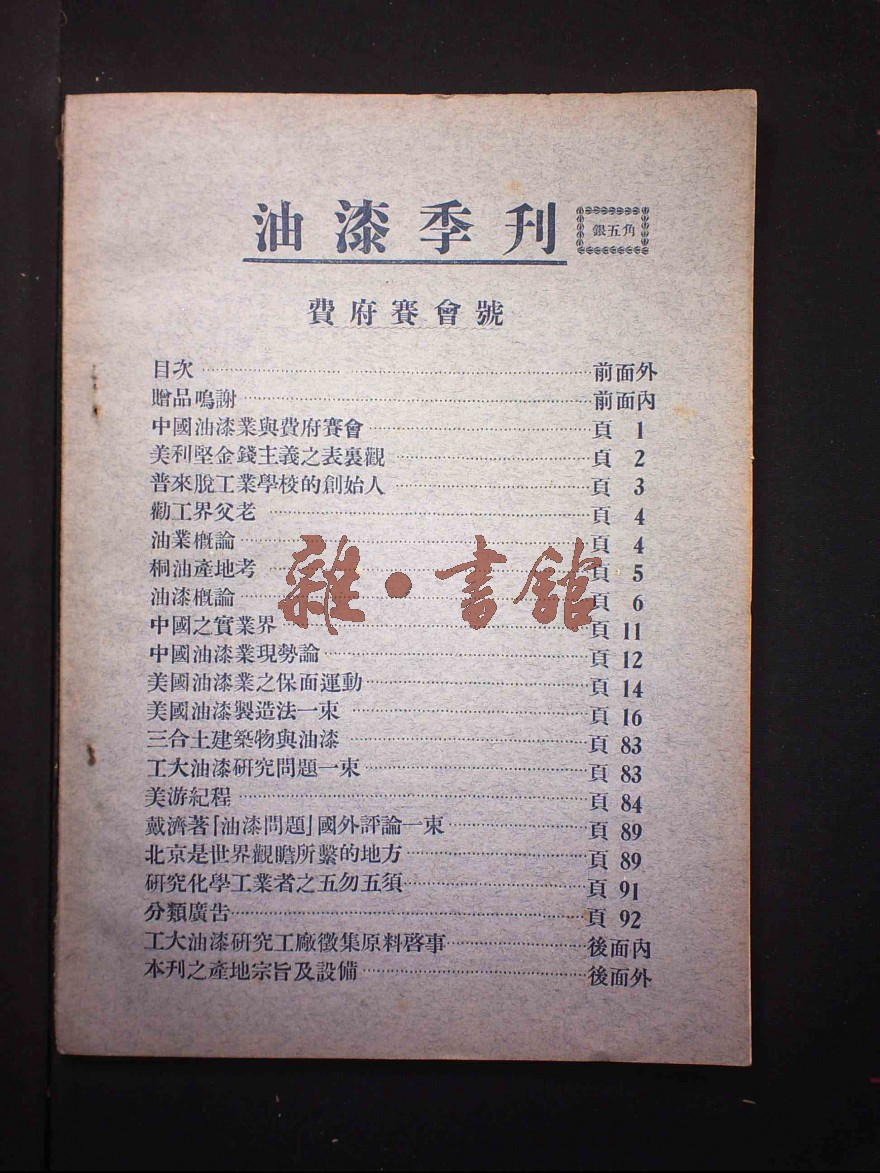 油漆季刊
銀五角
費府賽會號
目次 前面外
贈品鳴謝 前面內
中國油漆業與費府賽會 頁 1
美利堅金錢主義之表裏觀 頁 2
普來脫工業學校的創始人 頁 3
勸工界父老 頁 4
油業概論 頁 4
桐油產地考 頁 5
油漆概論 頁 6
中國之實業界 頁 11
中國油漆業現勢論 頁 12
美國油漆業之保面運動 頁 14
美國油漆製造法一束 頁 16
三合土建築物與油漆 頁 83
工大油漆研究問題一束 頁 83
美游紀程 頁 84
戴濟著「油漆問題」國外評論一束 頁 89
北京是世界觀瞻所繫的地方 頁 89
研究化學工業者之五勿五須 頁 91
分類廣告 頁 92
工大油漆研究工廠徵集原料啓事 後面內
本刊之產地宗旨及設備 後面外
雜·書館